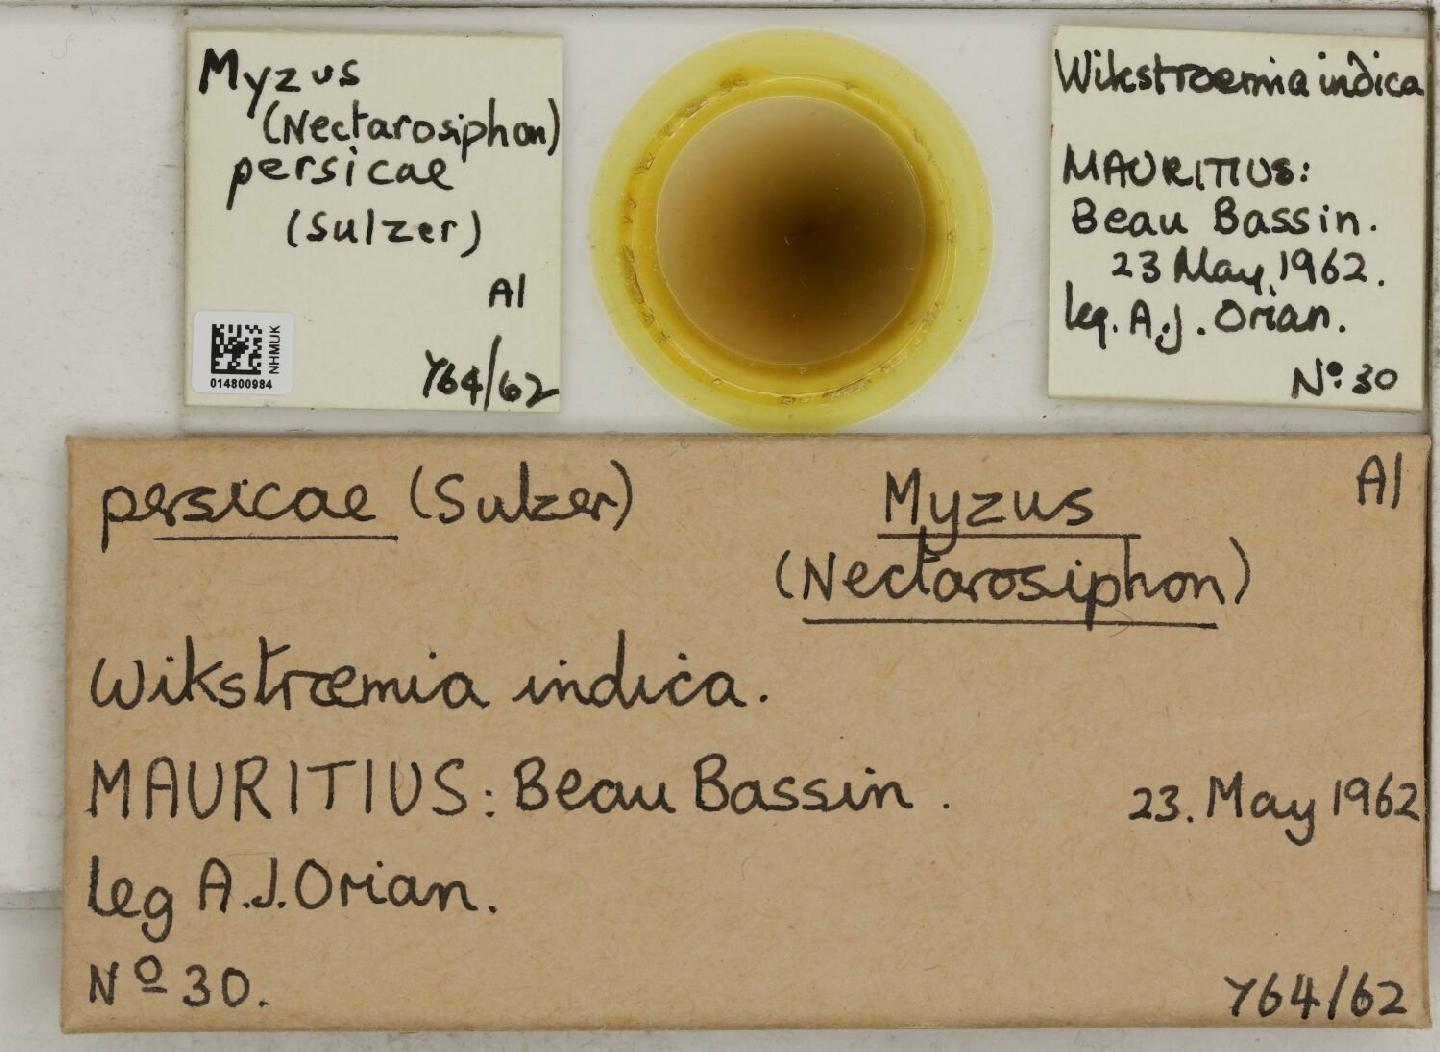 Myzus
(Nectarosiphon)
persicae
(Sulzer)
Al
Y64/62
NHMUK
014800984
Wikstroemia indica
MAURITIUS:
Beau Bassin.
23 May, 1962.
leg. A.J. Orian.
Nº 30
persicae (Sulzer) Myzus Al
(Nectarosiphon)
Wikstrœmia indica.
MAURITIUS: Beau Bassin. 23. May 1962
leg A.J. Orian.
Nº 30. Y64/62